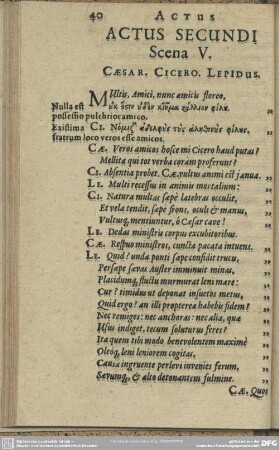 40 ACTUS
ACTUS SECUNDI
Scena V.
CÆSAR. CICERO. LEPIDUS.
MUltis, Amici, nunc amicis floreo,
Nulla est
possessio pulchrior amico.
Existima CI. Νόμιζ' ἀδελφοὺς τοὺς ἀληθινοὺς φίλους,
fratrum loco veros esse amicos.
CÆ. Veros amicos hosce mi Cicero haud putas?
Mellita qui tot verba coràm proferunt?
CI. Absentia probet. CÆ. vultus animi est janua.
LE. Multi recessus in animis mortalium:
CI. Natura multas sæpè latebras occulit,
Et vela tendit, sæpè frons, oculi & manus,
Vultusq; mentiuntur, ô Cæsar cave!
LE. Dedas ministris corpus excubitoribus.
CÆ. Respuo ministros, cuncta pacata intuens.
LE. Quid? unda ponti sæpe confidit trucu,
Persæpe sævas Auster imminuit minas,
Placidumq; fluctu murmurat leni mare:
Cur? timidus ut deponat insuetos metus,
Quid ergo? an illi propterea habebis fidem?
Nec remiges: nec anchoras: nec alia, quæ
Usus indiget, tecum soluturus feres?
Ita quem tibi modo benevolentem maximè
Oleoq; leni leniorem cogitas,
Causa ingruente perlevi invenies ferum,
Sævumq; & alto detonantem fulmine.
CÆ. Quos